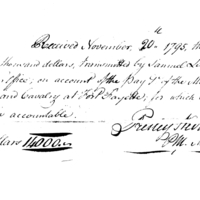 Received November 20th 1795, th
thousand dollars, transmitted by Samuel
office, on account of the Pay &c. of the M
and Cavalry at Fort Fayette, for which
accountable.
Dollars 14000